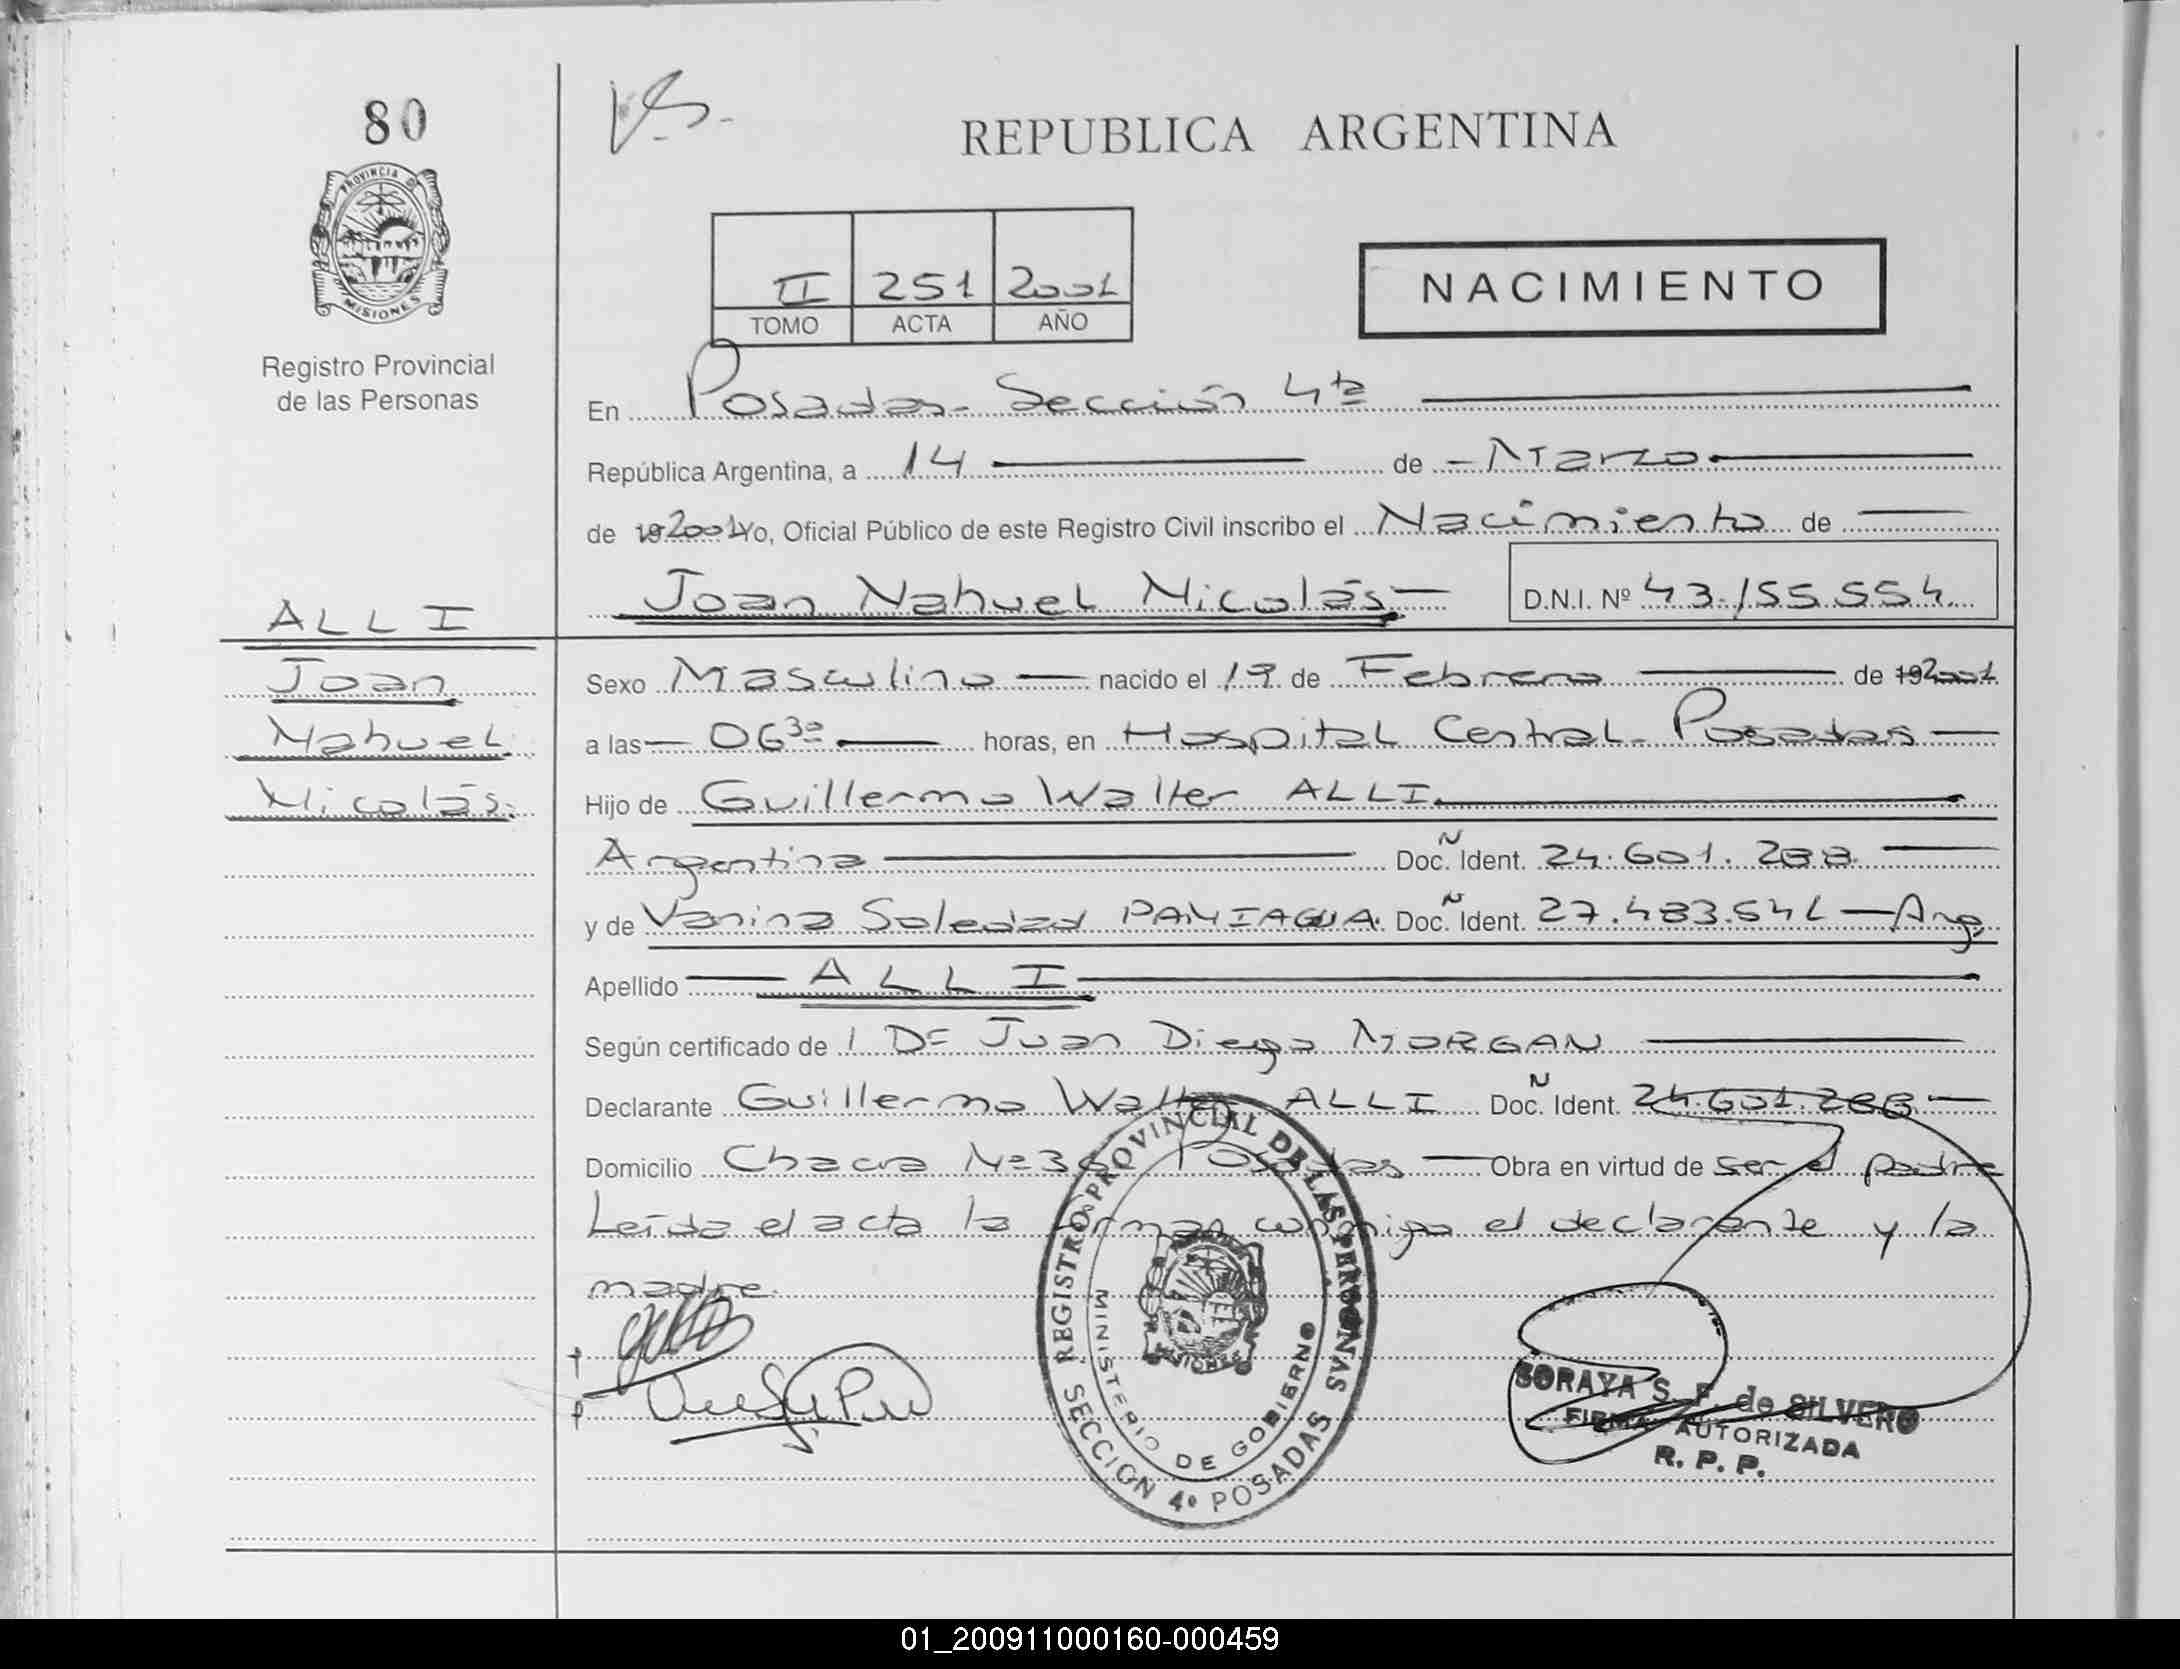 80
V.S.
REPUBLICA ARGENTINA
PROVINCIA DE
MISIONES
Registro Provincial
de las Personas
II 251 2001
TOMO ACTA AÑO
NACIMIENTO
En Posadas - Sección 4ta
República Argentina, a 14 de Marzo
de 19 2001 Yo, Oficial Público de este Registro Civil inscribo el Nacimiento de
Joan Nahuel Nicolás D.N.I. Nº 43.155.554
ALLI
Joan
Nahuel
Nicolás.
Sexo Masculino nacido el 19 de Febrero de 19 2001
a las 06 30 horas, en Hospital Central - Posadas
Hijo de Guillermo Walter ALLI
Argentina Doc. Ñ Ident. 24.601.288
y de Vanina Soledad PANIAGUA. Doc. Ñ Ident. 27.483.541 - Arg.
Apellido ALLI
Según certificado de l Dr Juan Diego MORGAN
Declarante Guillermo Walter ALLI Doc. Ñ Ident. 24.601.288
Domicilio Chacra Nº 36 Posadas Obra en virtud de ser el padre
Leída el acta la firman conmigo el declarante y la
madre.
REGISTRO PROVINCIAL DE LAS PERSONAS
MINISTERIO DE GOBIERNO
MISIONES
SECCION 4º POSADAS
SORAYA S. F. de SILVERO
FIRMA AUTORIZADA
R. P. P.
01_200911000160-000459